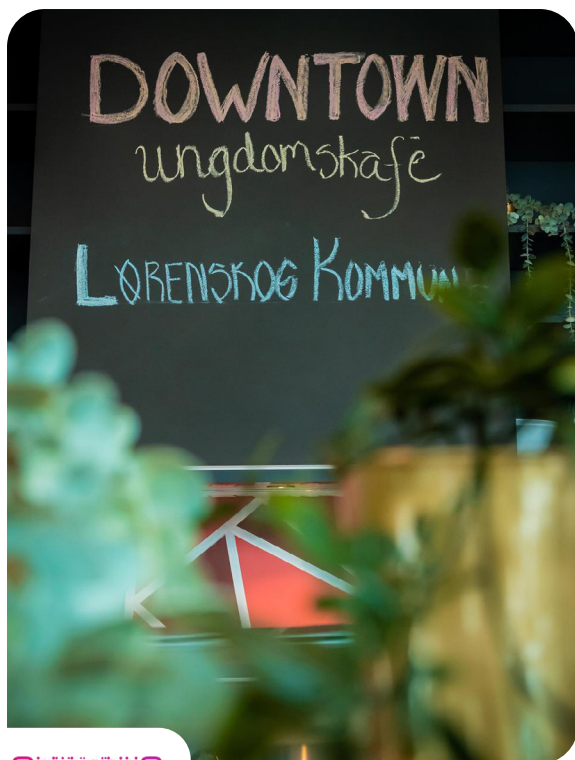 DOWNTOWN
ungdomskafē
LØRENSKOG KOMMUNE